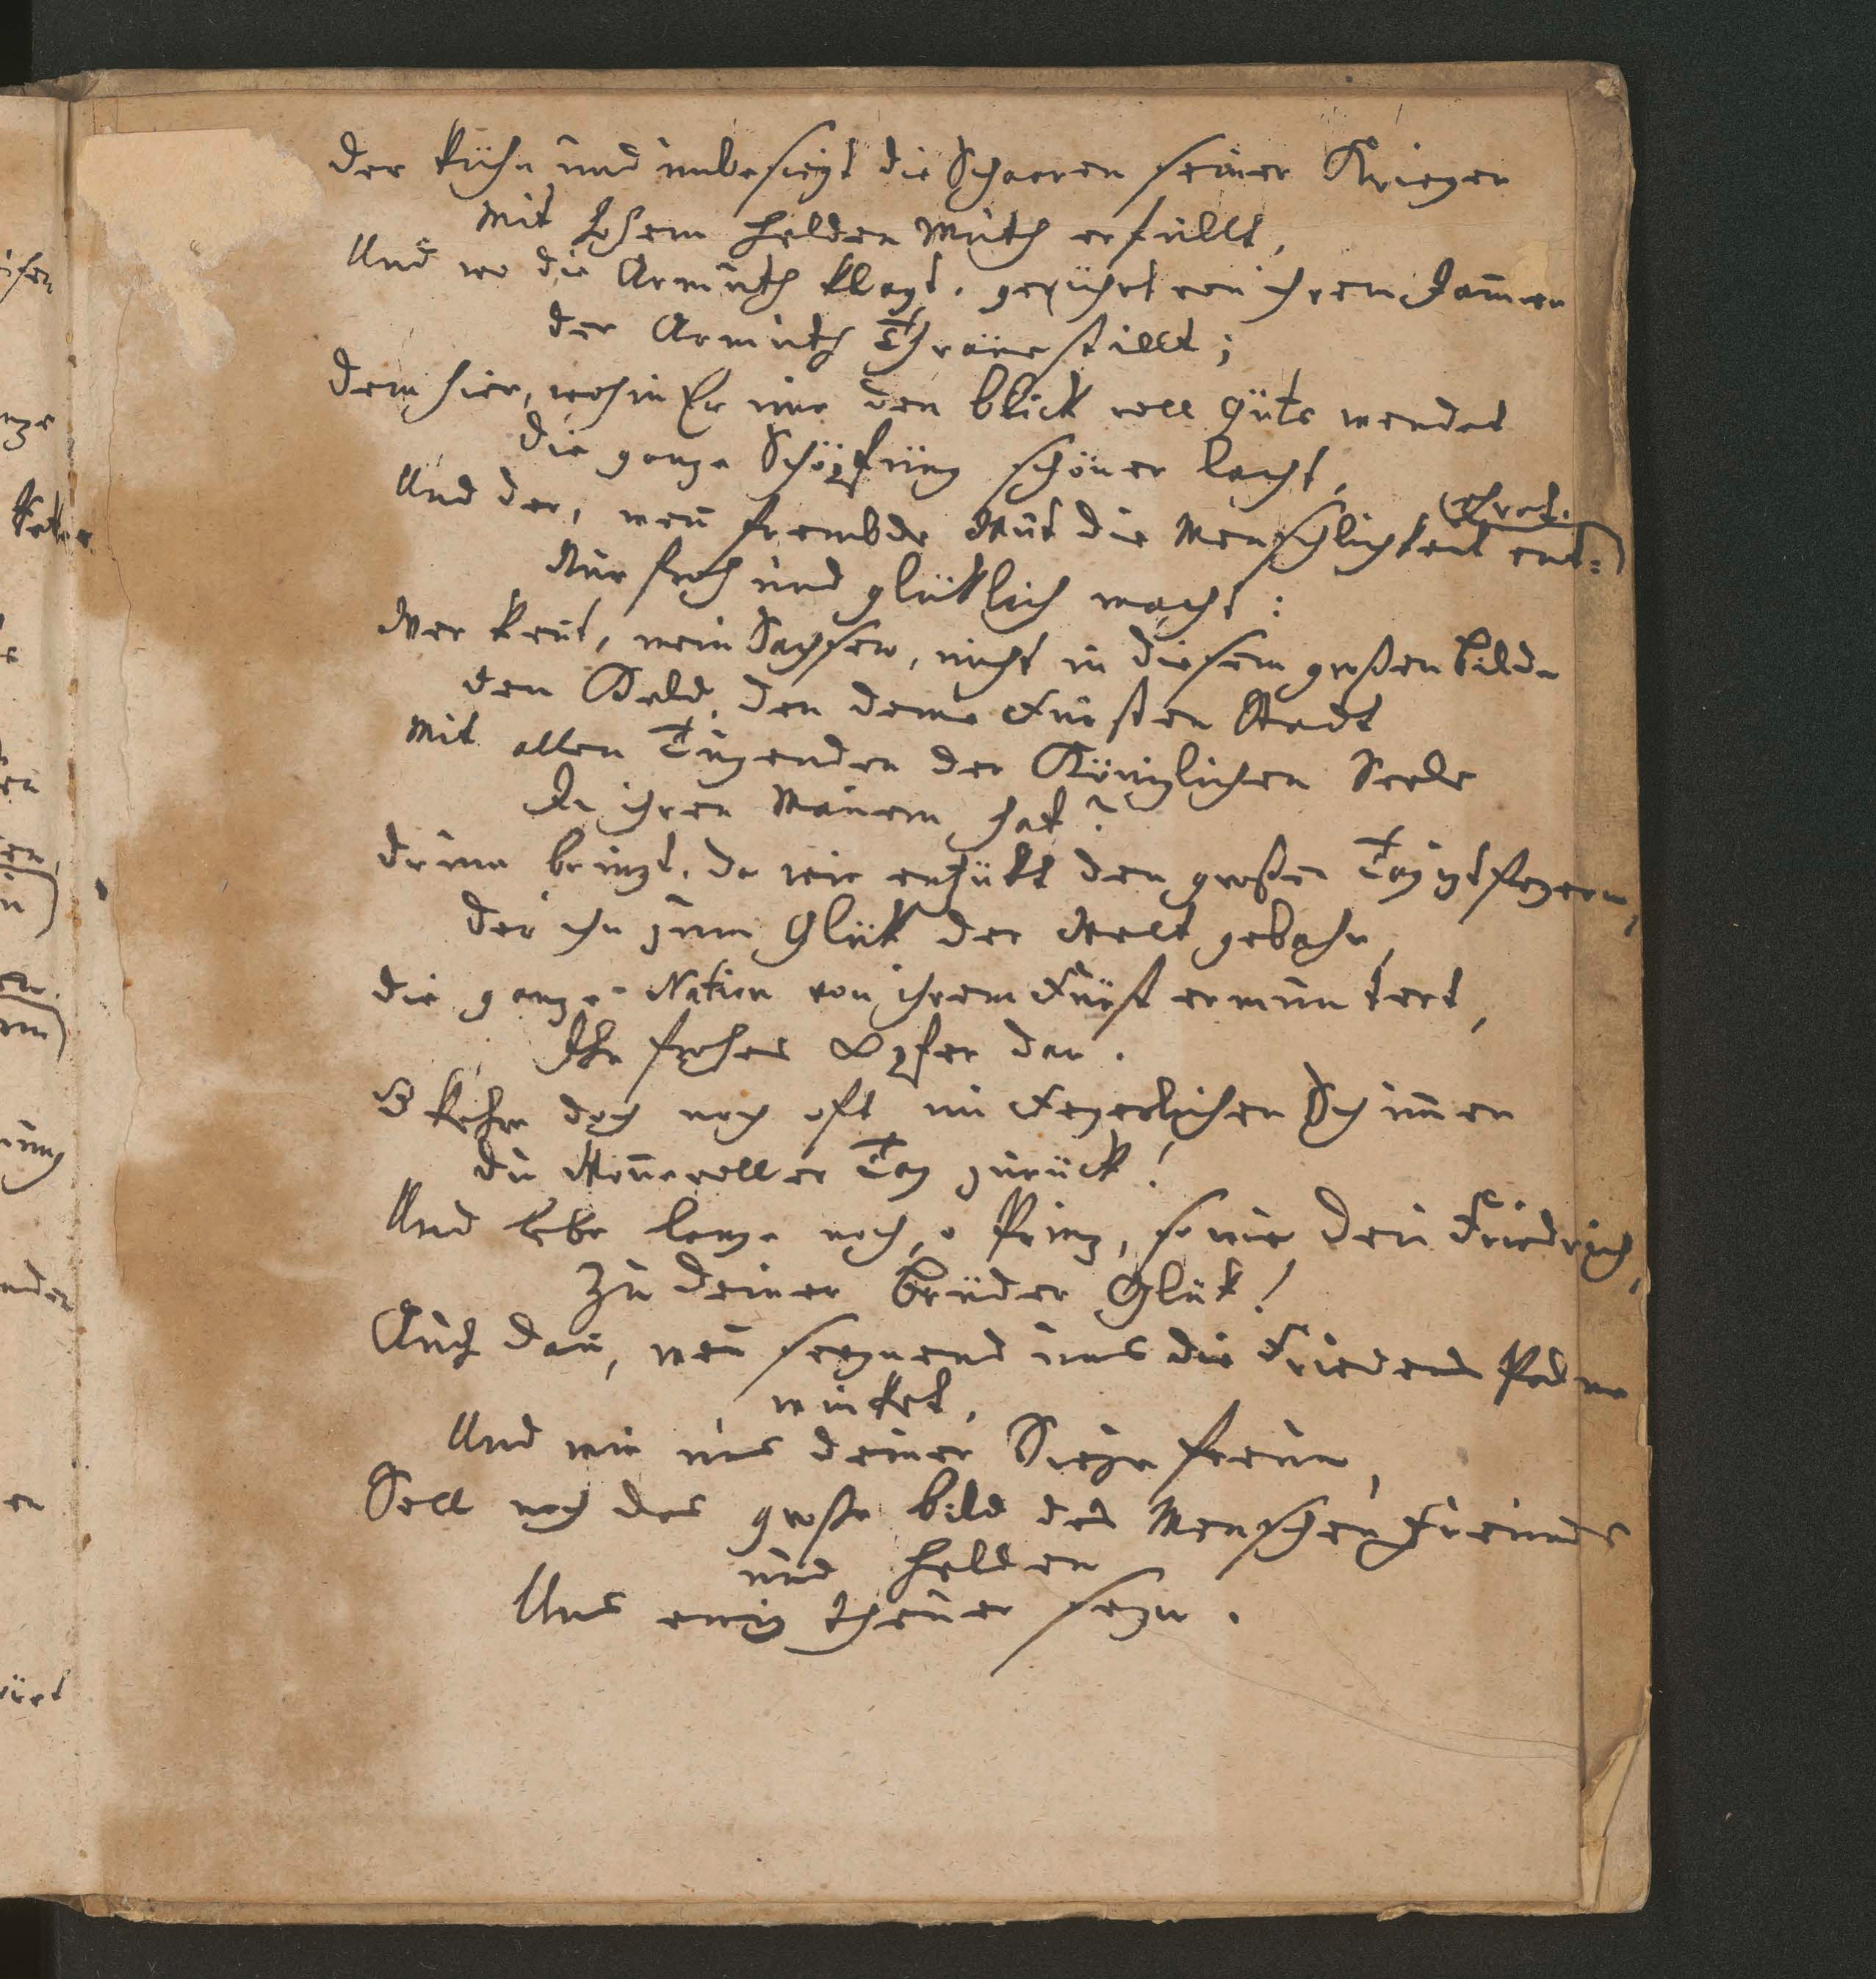 der kühn und unbesiegt die Schaaren seiner Krieger
Mit hohem Helden Muth erfüllt,
Und wo die Armuth klagt, gerührt von ihrem Jam̅er
der Armuth Thräne stillt;
dem hier, wohin Er nur den Blick voll Güte wendet
die ganze Schöpfung schöner lacht,
ehret.
Und der, wen̅ frembde Wut die Menschlichkeit ent=
Nur froh und glüklich macht:
Wer kent, mein Sachsen, nicht in diesem großen Bilde
den Held, den deine Fürsten Stadt
Mit allen Tugenden der Königlichen Seele
In ihren Mauern hat?
drum bringt, da wir entzükt den großen Tag izt feyern,
der ihn zum Glük der Welt gebahr,
die ganze Nation von ihrem Fürst ermuntert,
Ihr frohes Opfer dar.
O kehre doch noch oft im Feyerlichen Schim̅er
du Won̅evoller Tag zurück!
Und lebe lange noch, o Prinz, so wie dein Friedrich,
Zu deiner Brüder Glük!
Auch dan̅, wen̅ seegnend uns die Friedens Palme
winket,
Und wir uns deiner Siege freun,
Soll noch das große Bild des Menschen Freundes
und Helden
Uns ewig theuer seyn.